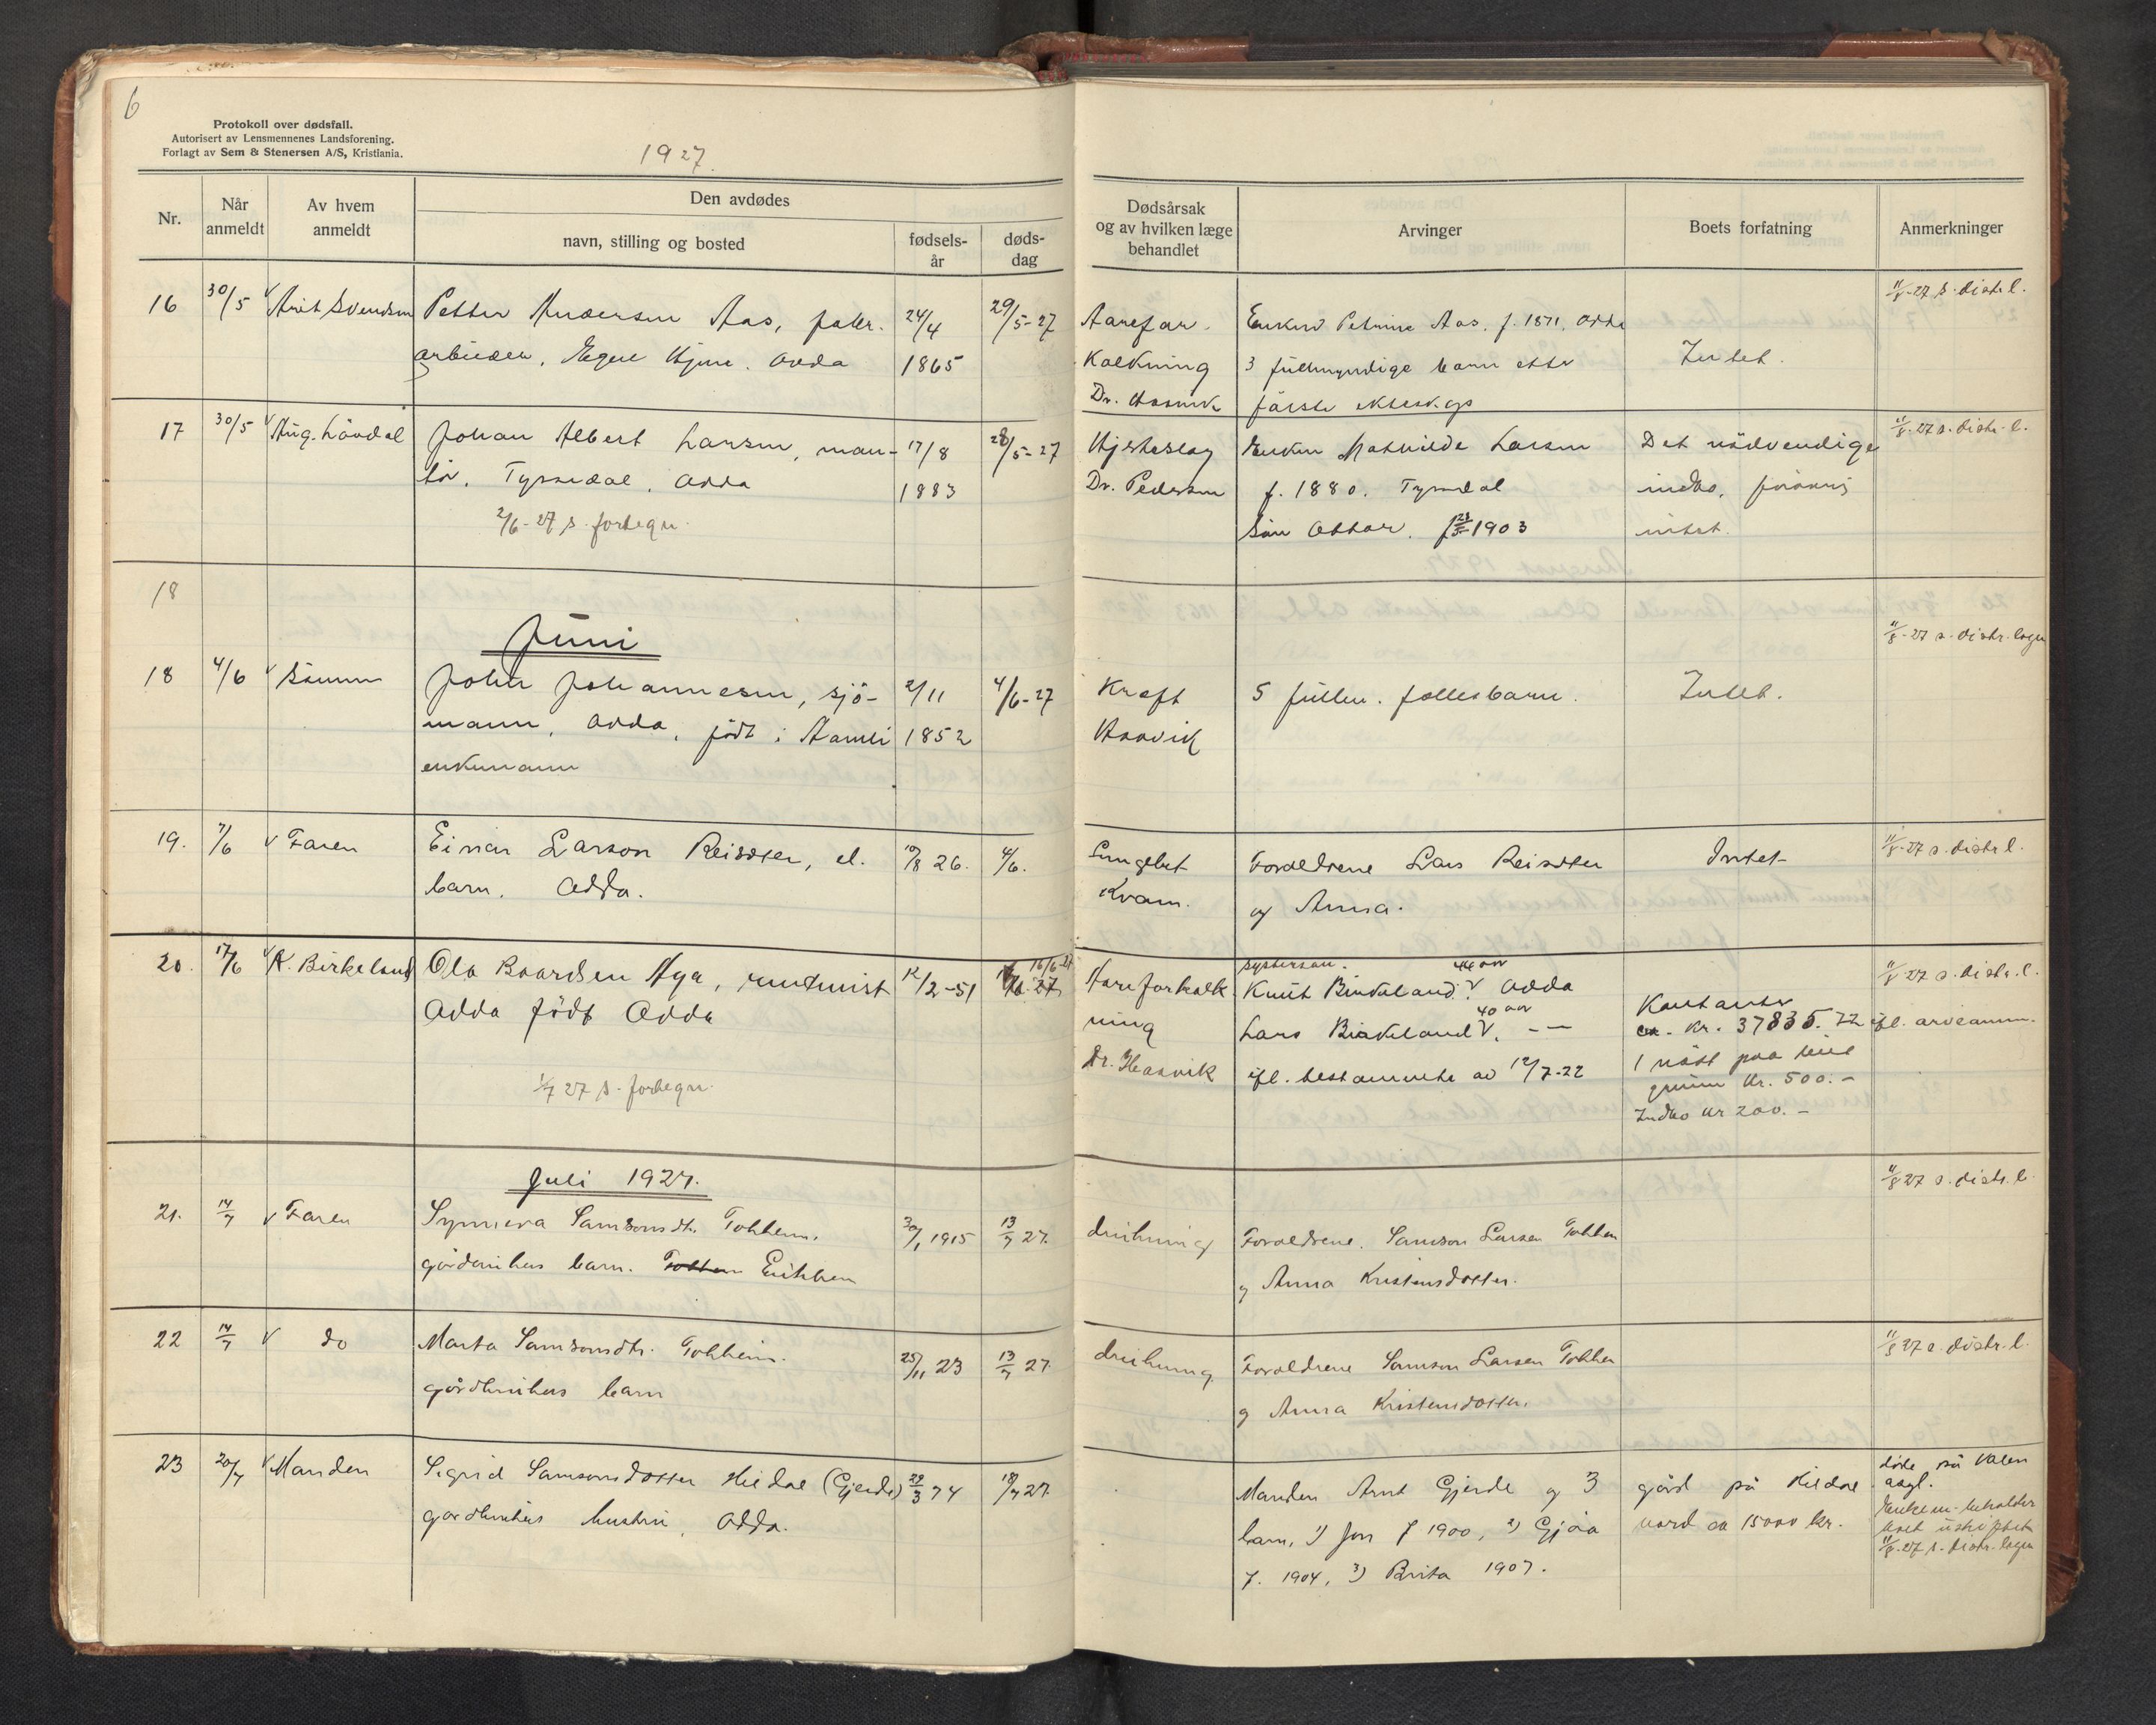 6
Protokoll over dødsfall.
Autorisert av Lensmennenes Landsforening.
Forlagt av Sem & Stenersen A/S, Kristiania.
1927.
Nr.
Når anmeldt
Av hvem anmeldt
Den avdødes
navn, stilling og bosted
fødsels-år
døds-dag
Dødsårsak og av hvilken læge behandlet
Arvinger
Boets forfatning
Anmerkninger
16 30/5 Svendsen Petter Andersen Aas, fabr. 24/4 29/5-27 Aarefor- Petrine Aas. f. 1871, Odda 11/8-27 s. distr l.
arbeider, Odda 1865 Kalkning 3 fullmyndige barn etter Intet.
Dr. første ektesk.
17 30/5 Aug. Løvdal Johan Albert Larsen, mon- 17/8 28/5-27 Hjerteslag Enken Mathilde Larsen Det nödvendige 11/8-27 s. distr. l.
tör, Tyssedal, Odda 1883 Dr. Pedersen f. 1880. Tyssedal indbo, forövrig
2/6-27 s. fortegn. Sön Ottar. 1903 intet.
18
Juni
11/8-27 s. distr. legen
18 4/6 Sönnen John Johannesen, sjö- 2/11 4/6-27 Kreft 5 fullm. fællesbarn. Intet.
mann, Odda, född i Aamli 1852 Haavik
enkemann
19. 7/6 Faren Einar Larson Reisæter, el. 10/8 26. 4/6. Lungebet. Foreldrene Lars Reisæter Intet 11/8-27 s. distr l.
barn. Odda. Kvam. og Anna.
20. 17/6 K. Birkeland Ola Baardsen Aga, rentenist 12/2-51 16/6 27 Aareforkalk- systersøn. 11/8-27 s. distr. l.
Odda född Odda ning Knut Birkeland Odda Kontanter
40 aar
Lars Birkeland. - — kr. 37835.72 ifl. arveanm.
Dr. Haavik ifl. testamente av 12/7-22 1 nöst paa leiet
1/7 27 s. fortegn. grunn kr. 500.-
Indbo kr 200.-
Juli 1927.
11/8 27 s. distr. l.
21. 14/7 Faren Synneva Samsonsdtr. Tokheim, 30/1 1915 13/7 27. drukning Foreldrene. Samson Larsen Tokheim
gårdbrukers barn. Eitrheim og Anna Kristensdotter.
22 14/7 do Marta Samsonsdtr. Tokheim. 25/11 23 13/7 27 drukning Foreldrene Samson Larsen Tokheim 11/8 27 s. distr. l.
gårdbrukers barn og Anna Kristensdotter.
23 20/7 Manden Sigrid Samsonsdotter Hildal (Gjerde) 22/3 74 18/7 27. Manden Arnt Gjerde og 3 gård på Hildal döde på Valen asyl.
gardbrukers hustru, Odda. barn, 1) Jon f 1900, 2) Gjöa verd ca 15000 kr. Enkem. beholder boet uskiftet
f. 1904, 3) Brita 1907. 11/8-27 s. distr. legen